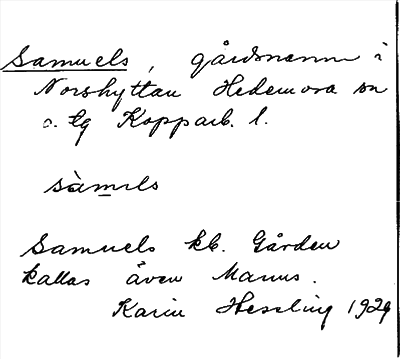 Samuels, gårdsnamn i
Norshyttan Hedemora sn
o. tg Kopparb. l.
sàmɩls
Samuels kb. Gården
kallas även Manns.
Karin Hessling 1929